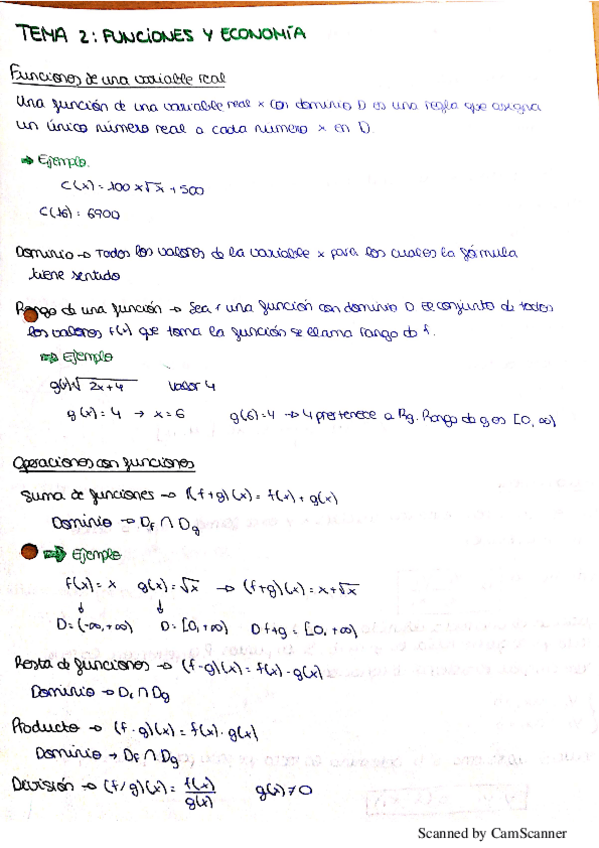 TEMA 2: FUNCIONES Y ECONOMÍA
Funciones de una variable real
Una función de una variable real x con dominio D es una regla que asigna
un único número real a cada numero x en D.
⇒ Ejemplo.
C(x) = 100x√x + 500
C(16) = 6900
Dominio → Todos los valores de la variable x para los cuales la fórmula
tiene sentido
Rango de una función → Sea f una función con dominio D el conjunto de todos
los valores f(x) que toma la función se llama rango de f.
⇒ Ejemplo
g(x)√2x+4 valor 4
g(x) = 4 → x = 6 g(6) = 4 → 4 pertenece a Rg. Rango de g es [0, ∞)
Operaciones con funciones
Suma de funciones → (f+g)(x) = f(x) + g(x)
Dominio → Df ∩ Dg
⇒ Ejemplo
f(x) = x g(x) = √x → (f+g)(x) = x+√x
D = (-∞, +∞) D = [0, +∞) D f+g = [0, +∞)
Resta de funciones → (f-g)(x) = f(x) - g(x)
Dominio → Df ∩ Dg
Producto → (f·g)(x) = f(x)·g(x)
Dominio → Df ∩ Dg
División → (f/g)(x) = f(x)/g(x) g(x) ≠ 0
Scanned by CamScanner